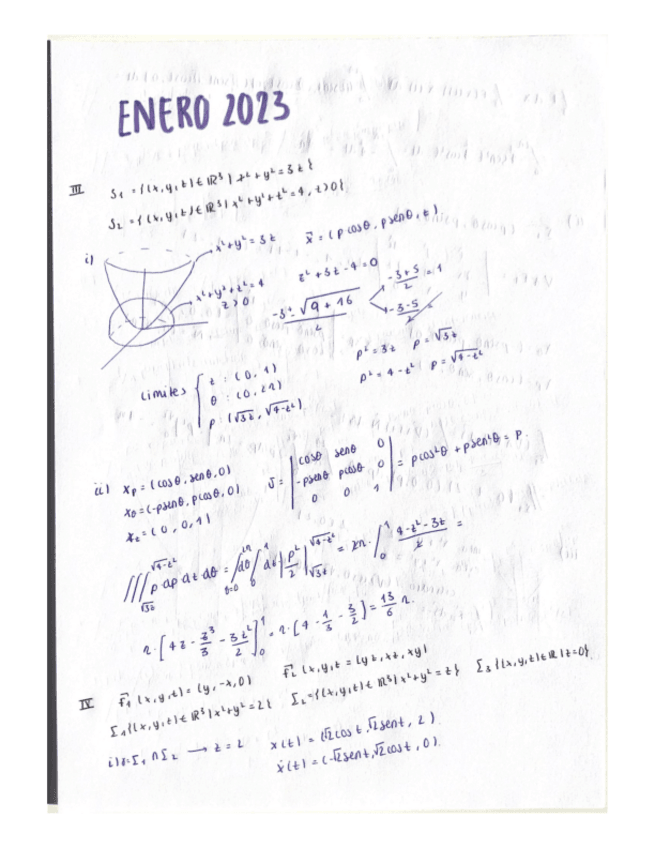 ENERO 2023
III S₁ = {(x,y,z) ∈ ℝ³ | x²+y² = 3z}
S₂ = {(x,y,z) ∈ ℝ³ | x²+y²+z² = 4, z>0}
i) x²+y² = 3z x⃗ = (ρcosθ, ρsenθ, z)
x²+y²+z² = 4
z>0
z²+3z-4=0
-3±√(9+16) / 2
-3+5 / 2 = 1
-3-5 / 2
ρ² = 3z ρ = √3z
ρ² = 4-z² ρ = √(4-z²)
Limites { z : (0,1)
θ : (0,2π)
ρ : (√3z, √(4-z²))
ii) xρ = (cosθ, senθ, 0)
xθ = (-ρsenθ, ρcosθ, 0)
xz = (0,0,1)
J = | cosθ senθ 0
-ρsenθ ρcosθ 0
0 0 1 | = ρcos²θ + ρsen²θ = ρ
∭_{√3z}^{√(4-z²)} ρ dρ dz dθ = ∫_{θ=0}^{2π} dθ ∫_0^1 dz | ρ²/2 |_{√3z}^{√(4-z²)} = 2π · ∫_0^1 (4-z²-3z)/2 =
π · [4z - z³/3 - 3z²/2]_0^1 = π · [4 - 1/3 - 3/2] = 13/6 π.
IV F⃗₁ (x,y,z) = (y,-x,0) F⃗₂ (x,y,z = (yz, xz, xy)
Σ₁{(x,y,z) ∈ ℝ³ | x²+y² = 2} Σ₂ = {(x,y,z) ∈ ℝ³ | x²+y² = z} Σ₃ {(x,y,z) ∈ ℝ | z=0}
i) γ = Σ₁ ∩ Σ₂ → z = 2 x(t) = (√2cost, √2sent, 2)
ẋ(t) = (-√2sent, √2cost, 0).